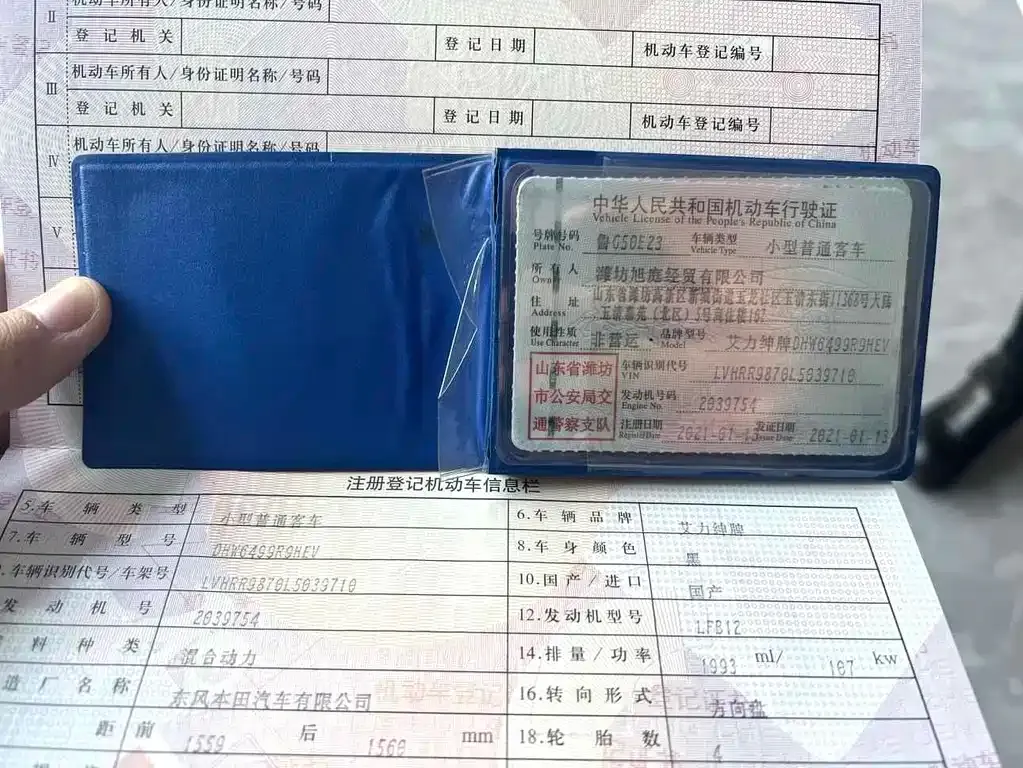 II 机动车所有人/身份证明名称/号码
登记机关 登记日期 机动车登记编号
III 机动车所有人/身份证明名称/号码
登记机关 登记日期 机动车登记编号
IV 机动车所有人/身份证明名称/号码
V
中华人民共和国机动车行驶证
Vehicle License of the People's Republic of China
号牌号码 鲁G50E23 车辆类型 小型普通客车
Plate No. Vehicle Type
所有人 潍坊旭庭经贸有限公司
Owner
住址 山东省潍坊高新区新城街道玉龙社区玉清东街11368号大路
Address 玉清嘉苑(北区)5号商住楼107
使用性质 非营运 品牌型号 艾力绅牌DHW6499R9HEV
Use Character Model
山东省潍坊 车辆识别代号 LVHRR9870L5039710
VIN
市公安局交 发动机号码 2039754
Engine No.
通警察支队 注册日期 2021-01-13 发证日期 2021-01-13
Register Date Issue Date
注册登记机动车信息栏
5.车辆类型 小型普通客车 6.车辆品牌 艾力绅牌
7.车辆型号 DHW6499R9HEV 8.车身颜色 黑
车辆识别代号/车架号 LVHRR9870L5039710 10.国产/进口 国产
发动机号 2039754 12.发动机型号 LFB12
料种类 混合动力 14.排量/功率 1993 ml/ 107 kw
造厂名称 东风本田汽车有限公司 16.转向形式 方向盘
距 前 1559 后 1560 mm 18.轮胎数 4